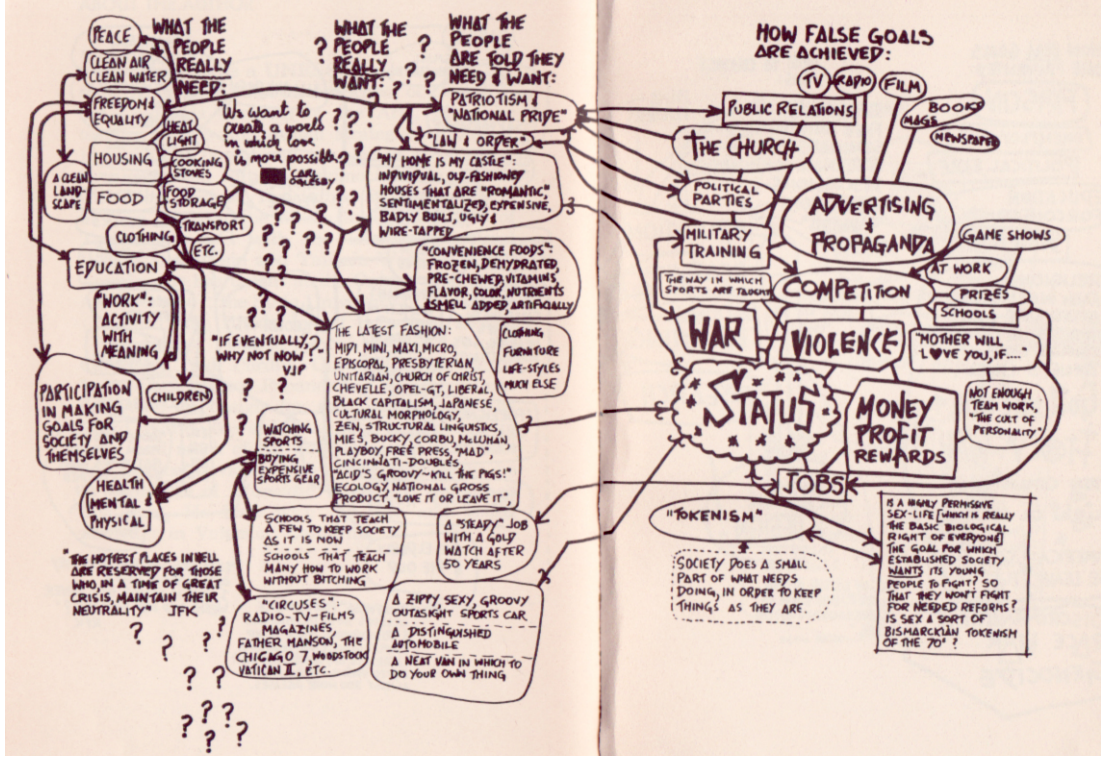 WHAT THE
PEOPLE
REALLY
NEED:
PEACE
CLEAN AIR
CLEAN WATER
FREEDOM &
EQUALITY
HEAT
LIGHT
HOUSING
COOKING
STOVES
A CLEAN
LAND-
SCAPE
FOOD
FOOD
STORAGE
TRANSPORT
CLOTHING
ETC.
EDUCATION
"WORK":
ACTIVITY
WITH
MEANING
PARTICIPATION
IN MAKING
GOALS FOR
SOCIETY AND
THEMSELVES
CHILDREN
HEALTH
[MENTAL &
PHYSICAL]
"THE HOTTEST PLACES IN HELL
ARE RESERVED FOR THOSE
WHO, IN A TIME OF GREAT
CRISIS, MAINTAIN THEIR
NEUTRALITY" JFK
WHAT THE
PEOPLE
REALLY
WANT:
"We want to
create a world
in which love
is more possible"
CARL
OGLESBY
"IF EVENTUALLY,
WHY NOT NOW?"
VJP
WHAT THE
PEOPLE
ARE TOLD THEY
NEED & WANT:
PATRIOTISM &
"NATIONAL PRIDE"
"LAW & ORDER"
"MY HOME IS MY CASTLE":
INDIVIDUAL, OLD-FASHIONED
HOUSES THAT ARE "ROMANTIC",
SENTIMENTALIZED, EXPENSIVE,
BADLY BUILT, UGLY &
WIRE-TAPPED.
"CONVENIENCE FOODS":
FROZEN, DEHYDRATED,
PRE-CHEWED, VITAMINS,
FLAVOR, COLOR, NUTRIENTS
& SMELL ADDED ARTIFICIALLY
THE LATEST FASHION:
MIDI, MINI, MAXI, MICRO,
EPISCOPAL, PRESBYTERIAN,
UNITARIAN, CHURCH OF CHRIST,
CHEVELLE, OPEL-GT, LIBERAL,
BLACK CAPITALISM, JAPANESE,
CULTURAL MORPHOLOGY,
ZEN, STRUCTURAL LINGUISTICS,
MIES, BUCKY, CORBU, McLUHAN,
PLAYBOY, FREE PRESS, "MAD",
CINCINNATI-DOUBLES,
"ACID'S GROOVY–KILL THE PIGS!"
ECOLOGY, NATIONAL GROSS
PRODUCT, "LOVE IT OR LEAVE IT",
CLOTHING
FURNITURE
LIFE-STYLES
MUCH ELSE
WATCHING
SPORTS
BUYING
EXPENSIVE
SPORTS GEAR
SCHOOLS THAT TEACH
A FEW TO KEEP SOCIETY
AS IT IS NOW
SCHOOLS THAT TEACH
MANY HOW TO WORK
WITHOUT BITCHING
A "STEADY" JOB
WITH A GOLD
WATCH AFTER
50 YEARS
"CIRCUSES":
RADIO-TV-FILMS
MAGAZINES,
FATHER MANSON, THE
CHICAGO 7, WOODSTOCK
VATICAN II, ETC.
A ZIPPY, SEXY, GROOVY
OUTASIGHT SPORTS CAR
A DISTINGUISHED
AUTOMOBILE
A NEAT VAN IN WHICH TO
DO YOUR OWN THING
HOW FALSE GOALS
ARE ACHIEVED:
TV
RADIO
FILM
BOOKS
MAGS
NEWSPAPER
PUBLIC RELATIONS
THE CHURCH
POLITICAL
PARTIES
ADVERTISING
&
PROPAGANDA
MILITARY
TRAINING
GAME SHOWS
AT WORK
THE WAY IN WHICH
SPORTS ARE TAUGHT
COMPETITION
PRIZES
SCHOOLS
WAR
VIOLENCE
"MOTHER WILL
L♥VE YOU, IF...."
STATUS
MONEY
PROFIT
REWARDS
NOT ENOUGH
TEAM WORK,
"THE CULT OF
PERSONALITY"
JOBS
"TOKENISM"
SOCIETY DOES A SMALL
PART OF WHAT NEEDS
DOING, IN ORDER TO KEEP
THINGS AS THEY ARE.
IS A HIGHLY PERMISSIVE
SEX-LIFE [WHICH IS REALLY
THE BASIC BIOLOGICAL
RIGHT OF EVERYONE]
THE GOAL FOR WHICH
ESTABLISHED SOCIETY
WANTS ITS YOUNG
PEOPLE TO FIGHT? SO
THAT THEY WON'T FIGHT
FOR NEEDED REFORMS?
IS SEX A SORT OF
BISMARCKIAN TOKENISM
OF THE 70s?